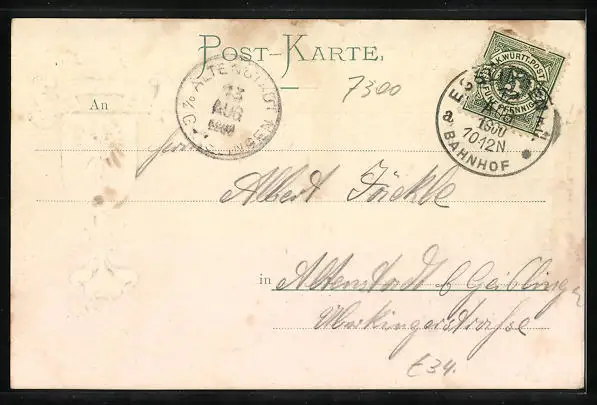 POST-KARTE.
7300
K. WÜRTT. POST
PFENNIG
ALTENSTADT
13
AUG
1900
ESSLINGEN
1900
10-12N
a BAHNHOF
An
Herrn
Albert Jäckle
in Altenstadt b Geislingen
Überkingerstrasse
E34.